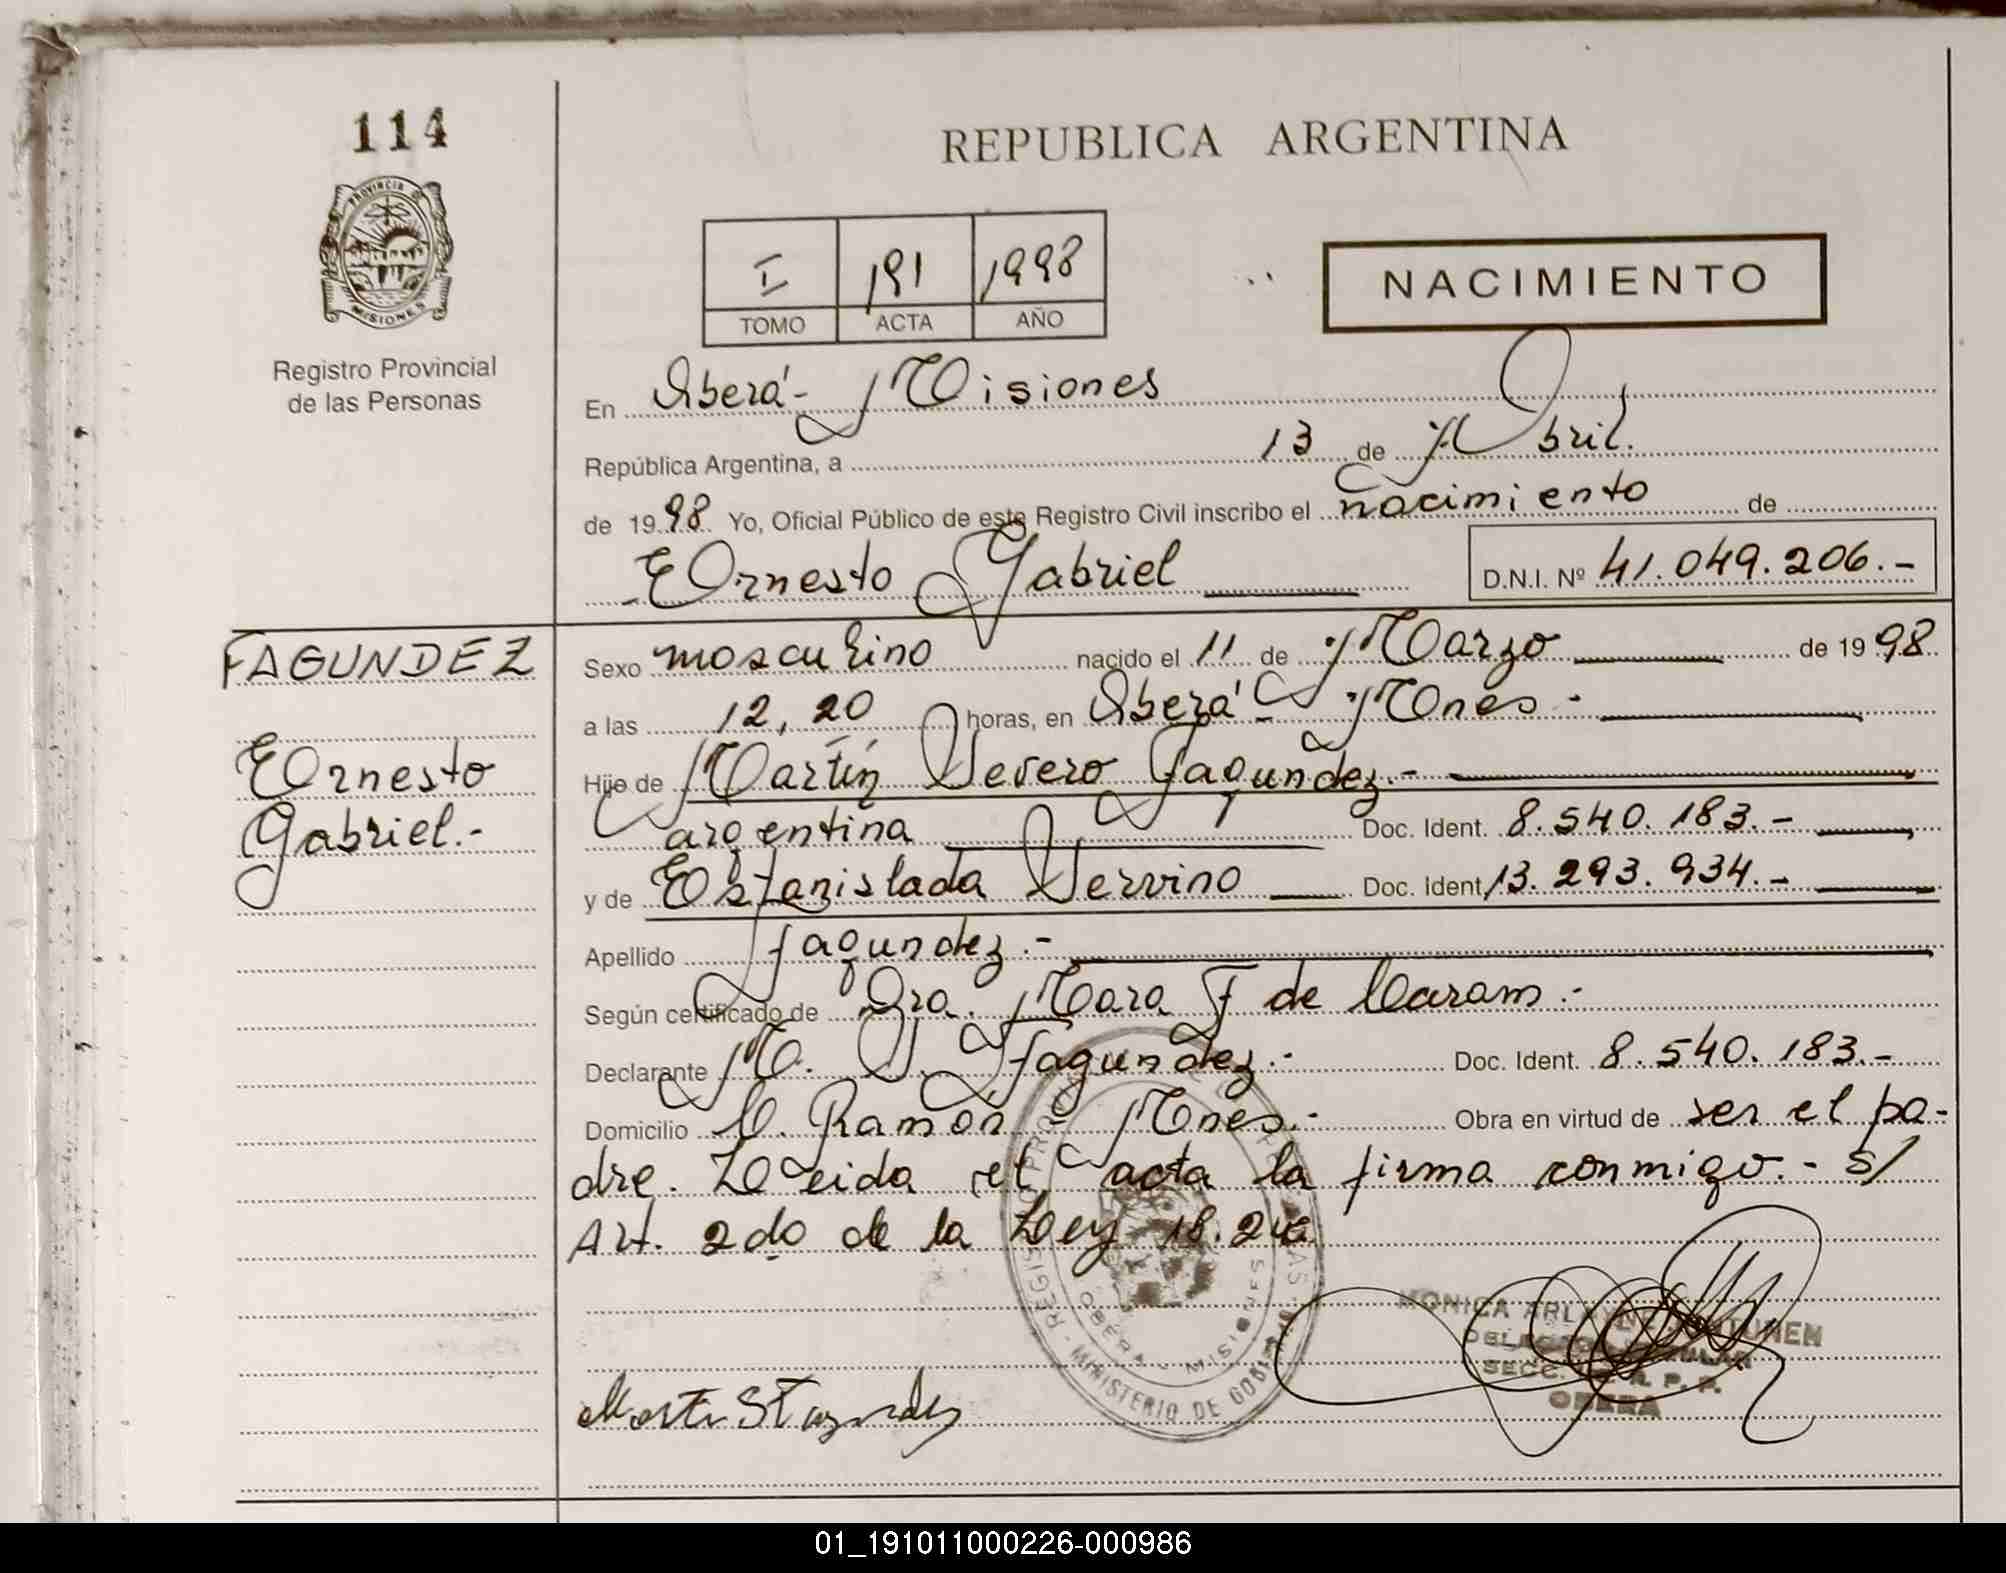 114
REPUBLICA ARGENTINA
PROVINCIA DE
MISIONES
I 191 1998
TOMO ACTA AÑO
NACIMIENTO
Registro Provincial
de las Personas
En Oberá - Misiones
República Argentina, a 13 de Abril.
de 1998 Yo, Oficial Público de este Registro Civil inscribo el nacimiento de
Ernesto Gabriel D.N.I. Nº 41.049.206.-
FAGUNDEZ
Ernesto
Gabriel.-
Sexo masculino nacido el 11 de Marzo de 1998
a las 12,20 horas, en Oberá - Mnes.-
Hijo de Martín Severo Fagundez.-
argentina Doc. Ident. 8.540.183.-
y de Estanislada Servino Doc. Ident. 13.293.934.-
Apellido Fagundez.-
Según certificado de Dra. Mara F de Caram.-
Declarante M. S. Fagundez.- Doc. Ident. 8.540.183.-
Domicilio C. Ramón - Mnes.- Obra en virtud de ser el pa-
dre. Leida el acta la firma conmigo.- S/
Art. 2do de la Ley 18.248
MONICA
OBERA - MISIONES
SECC. R. P. P.
MINISTERIO DE GOBIERNO
OBERA
01_191011000226-000986